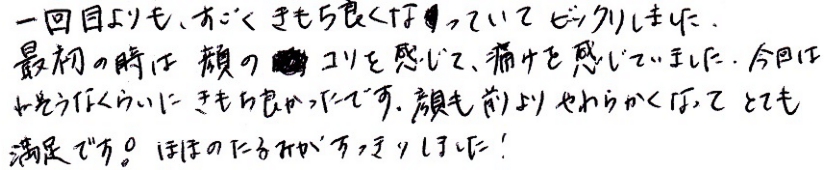 一回目よりも、すごくきもち良くなっていてビックリしました.
最初の時は顔のコリを感じて、痛けを感じていました. 今回は
ねそうなくらいにきもち良かったです. 顔も前よりやわらかくなってとても
満足です。ほほのたるみがすっきりしました!